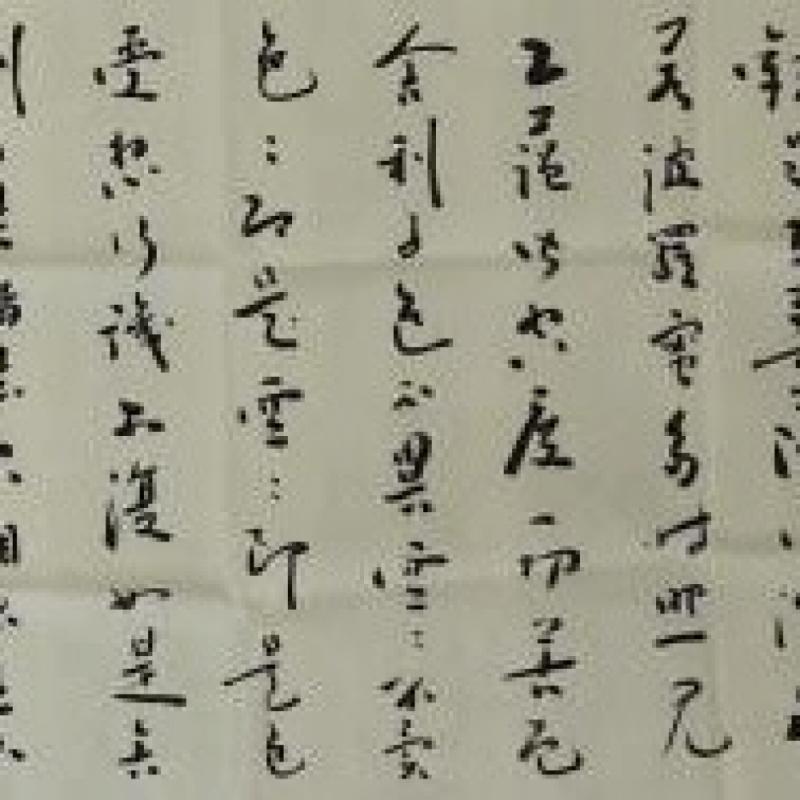 若波羅蜜多時照見
五蘊皆空度一切苦厄
舍利子色不異空々不異
色々即是空々即是色
受想行識亦復如是舍